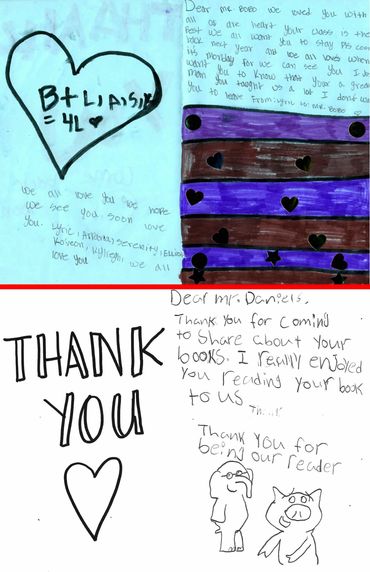 B + L, A, S, E
= 4L
Dear Mr. BoBo we loved you with
all of are heart your class is the
Best we all want you to stay Pls come
back next year and we all love when
its monday for we can see you I
want you to know that your a great
man you taught us a lot I don't want
you to leave From: Lyric To: Mr. BoBo
We all love you we hope
we see you soon love
you. Lyric, Serenity, Elliot
Kyleigh, we all
love you
THANK
YOU
Dear Mr. Daniels,
Thank You for coming
to share about your
books. I really enjoyed
you reading your book
to us
Thank You for
being our reader